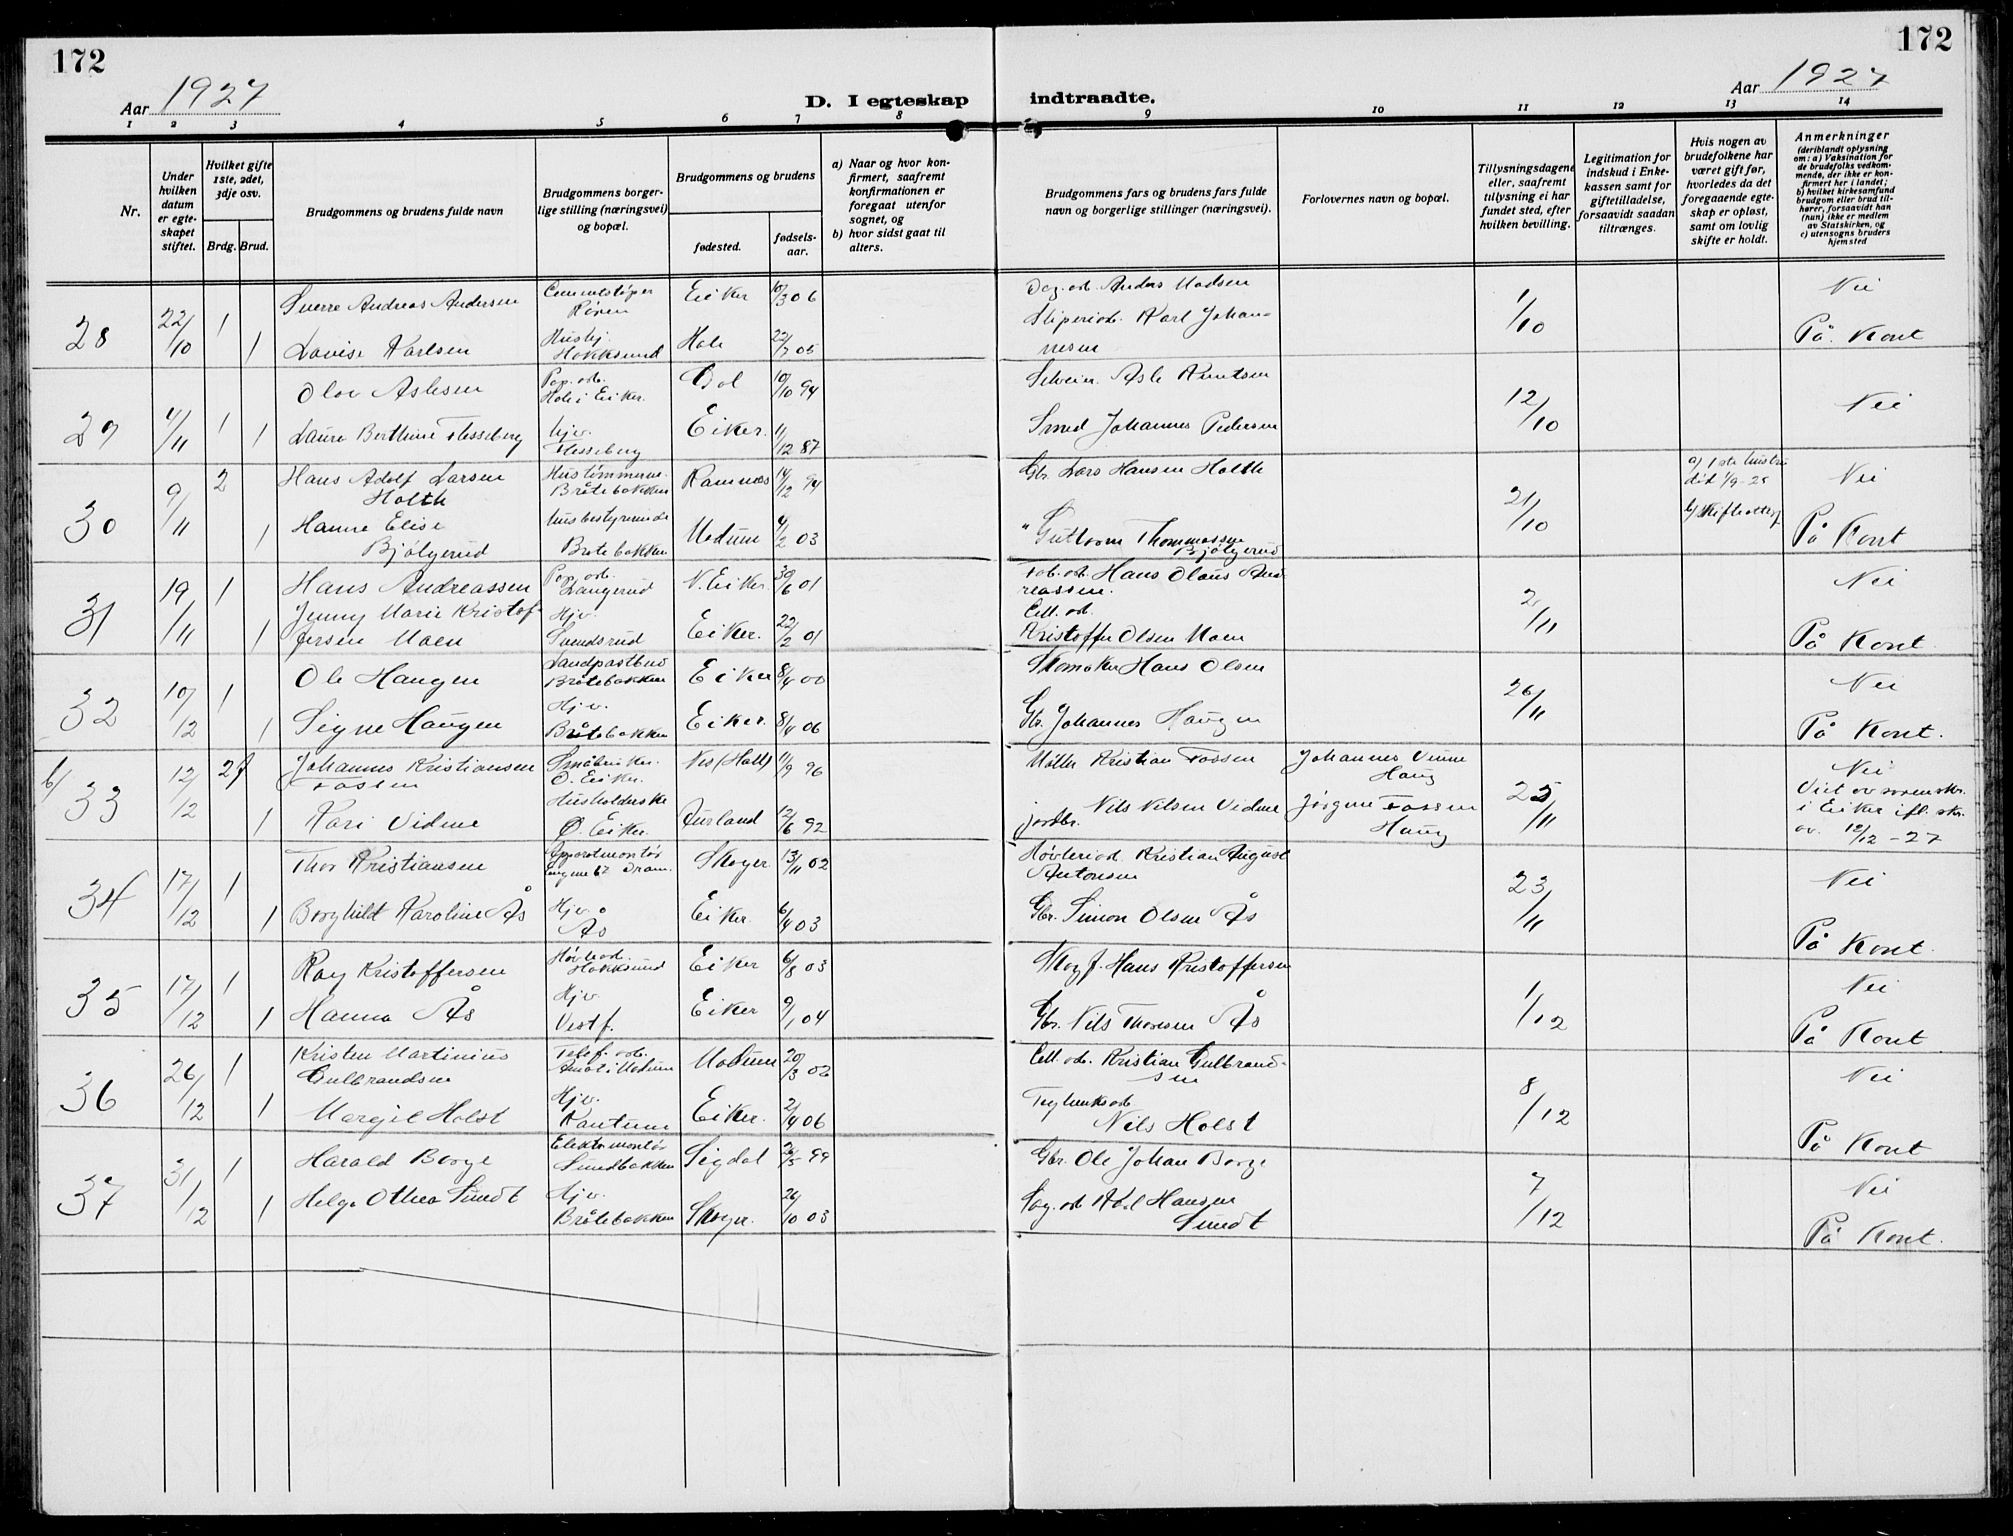 172
172
Aar 1927
D. I egteskap
indtraadte.
Aar 1927
1 2 3 4 5 6 7 8 9 10 11 12 13 14
Nr.
Under
hvilken
datum
er egte-
skapet
stiftet.
Hvilket gifte
1ste, 2det,
3dje osv.
Brdg. Brud.
Brudgommens og brudens fulde navn
Brudgommens borger-
lige stilling (næringsvei)
og bopæl.
Brudgommens og brudens
fødested.
fødsels-
aar.
a) Naar og hvor kon-
firmert, saafremt
konfirmationen er
foregaat utenfor
sognet, og
b) hvor sidst gaat til
alters.
Brudgommens fars og brudens fars fulde
navn og borgerlige stillinger (næringsvei).
Forlovernes navn og bopæl.
Tillysningsdagene
eller, saafremt
tillysning ei har
fundet sted, efter
hvilken bevilling.
Legitimation for
indskud i Enke-
kassen samt for
giftetilladelse,
forsaavidt saadan
tiltrænges.
Hvis nogen av
brudefolkene har
været gift før,
hvorledes da det
foregaaende egte-
skap er opløst,
samt om lovlig
skifte er holdt.
Anmerkninger
(deriblandt oplysning
om: a) Vaksination for
de brudefolks vedkom-
mende, der ikke er kon-
firmert her i landet;
b) hvilket kirkesamfund
brudgom eller brud til-
hører, forsaavidt han
(hun) ikke er medlem
av Statskirken, og
c) utensogns bruders
hjemsted
28 22/10 1 Sverre Andreas Andersen Cementstøper Eiker 10/3 06 Dag.arb. Anders Madsen 1/10 Nei
1 Lovise Karlsen Hokksund Hole 22/7 05 Sliperiarb. Karl Johan-
nesen På Kont
29 4/11 1 Olav Aslesen Pap. arb.
Hole i Eiker. Gol 10/10 94 Asle Knutsen 12/10 Nei
1 Laura Berthine Flesseberg Hjv.
Flesseberg Eiker. 11/12 87 Smed Johannes Pedersen
30 9/11 2 Hans Adolf Larsen
Holth Hustømmerm.
Bråtebakken Ramnæs 14/12 94 Gbr. Lars Hansen Holth 21/10 a) 1ste hustru
død 1/9-25 Nei
1 Hanne Elise
Bjølgerud Husbestyrerinde
Bråtebakken Modum 4/2 03 " Guttorm Thommassen
Bjølgerud b) Skifteattest På Kont
31 19/11 1 Hans Andreassen Pap. arb.
Langerud N. Eiker. 30/6 01 Fab. arb. Hans Olaus And-
reassen. 2/11 Nei
1 Jenny Marie Kristof-
fersen Moen Hjv.
Svendsrud Eiker. 22/2 01 Cell. arb.
Kristoffer Olsen Moen På Kont.
32 10/12 1 Ole Haugen Landpostbud
Bråtebakken Eiker 8/4 00 Skomaker Hans Olsen 26/11 Nei
1 Signe Haugen Hjv.
Bråtebakken Eiker. 8/4 06 Gbr. Johannes Haugen På Kont.
b/ 33 12/12 2 Johannes Kristiansen
Fossen Småbruker.
Ø. Eiker. Nes (Hall) 11/9 96 Møller Kristian Fossen Johannes Vinne
Haug 25/11 Nei
1 Kari Vidme Husholderske
Ø. Eiker. Aurland 12/6 92 jordbr. Nils Nilsen Vidme Jørgine Fossen
Haug Viet av sorenskr.
i Eiker ifl. skr.
av. 12/12-27
34 17/12 1 Thor Kristiansen Apparatmontør
Engene 67 Dram. Skoger 13/11 02 Høvleriarb. Kristian August
Antonsen 23/11 Nei
1 Borghild Karoline Ås Hjv.
Ås Eiker. 6/4 03 Gbr. Simon Olsen Ås På Kont.
35 17/12 1 Roy Kristoffersen Høvlearb.
Hokksund Eiker 6/8 03 Skogf. Hans Kristoffersen 1/12 Nei
1 Hanna Ås Hjv.
Vestf. Eiker 9/1 04 Gbr. Nils Thoresen Ås På Kont
36 26/12 1 Kristen Martinius
Gulbrandsen Telef. arb.
Åmot i Modum Modum 20/3 02 Cell. arb. Kristian Gulbrand-
sen 8/12 Nei
1 Margit Holst Hjv.
Eiker. 2/4 06 Nils Holst På Kont
37 31/12 1 Harald Borge Elektromontør
Sundbakken Sigdal 99 Gbr. Ole Johan Borge 7/12 Nei
1 Helga Othea Sundt Hjv.
Bråtebakken Skoger. 26/10 03 Sag. arb. Hansen
Sundt På Kont.